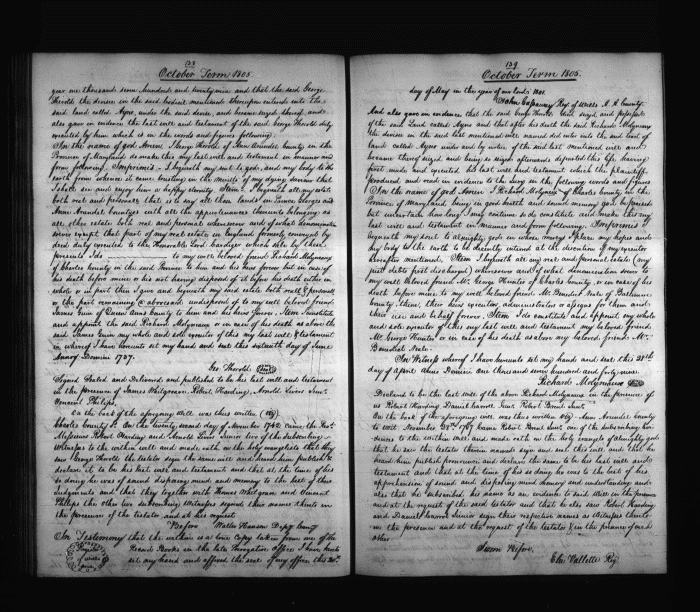 138
October Term 1805.
year one thousand seven hundred and twenty nine and that the said George
Thorold the devisee in the said bodies mentioned thereupon entered into the
said land called Ayno, under the said devise, and became seized thereof, and
also gave in evidence the last will and testament of the said George Thorold duly
executed by him which is in the words and figures following.
In the name of god Amen I George Thorold of Ann Arundel County in the
Province of Maryland do make this my last will and testament in manner and
form following. Imprimis - I bequeath my soul to god, and my body to the
earth from whence it came trusting in the merits of my dying saviour that
I shall see and enjoy him a happy eternity. Item. I bequeath all my estate
both real and personal that is to say all those lands in Prince Georges and
Anne Arundel Countys with all the appurtenances thereunto belonging as
all other estate both real and personal wheresoever and of what denomination
soever except that part of my real estate in England formerly conveyed by
deed duly executed to the Honorable Lord which sale by these
presents I do to my well beloved friend Richard Molyneux
of Charles County in the said Province to him and his heirs forever but in case of
his death before mine or his not having disposed of it before his death either in
whole or in part then I give and bequeath my said estate both real & personal
or the part remaining as aforesaid undisposed of to my well beloved friend
James Quin of Queen Anns County to him and his heirs forever. Item I constitute
and appoint the said Richard Molyneux or in case of his death as above the said
James Quin my whole and sole executor of this my last will & testament
in whereof I have hereunto set my hand and seal this sixteenth day of June
Annoy Domini 1737.
Geo: Thorold (Seal)
Signed Sealed and Delivered and published to be his last will and testament
in the presence of James Whitgreave Robert Harding, Arnold Livers Junr.
Vincent Philips.
On the back of the aforegoing Will was thus written (viz)
Charles County Sc. On the twenty second day of November 1742 came the Revd.
Messieurs Robert Harding and Arnold Livers Junior two of the subscribing
Witnesses to the within will and made oath on the holy evangelists that they
saw George Thorold the testator sign the same will and heard him publish &
declare it to be his last will and testament and that at the time of his
so doing he was of sound disposing mind and memory to the best of their
Judgments and that they together with Thomas Whitgrave and Vincent
Philips the other two subscribing Witnesses signed their names thereto in
the presence of the testator and at his request
Before Walter Hanson Depy County
In Testimony that the within is a true Copy taken from one of the
Record Books in the late Prerogative Office I have hereto
set my hand and affixed the seal of my office this 20th
139
October Term 1805.
day of May in the year of our lord 1801.
John Gassaway Reg. of Wills A. A. County.
And also gave in evidence that the said George Thorold died seized and possessed
of the said Land called Ayno and that after his death the said Richard Molyneux
the devisee in the said last mentioned will named did enter into the said tract of
land called Ayno under and by virtue of the said last mentioned will and
became thereof seized and being so seized afterwards departed this life, having
first made and executed his last will and testament which the plaintiff
produced and read in evidence to the Jury in the following words and figures
In the name of god Amen I Richard Molyneux of Charles County in the
Province of Maryland being in good health and sound memory god be praised
but uncertain how long I may continue so do constitute and make this my
last will and testament in manner and form following. Imprimis I
bequeath my soul to almighty god in whose mercys I place my hopes and
my body to the earth to be decently interred at the discretion of my executor
hereafter mentioned. Item I bequeath all my real and personal estate (my
just debts first discharged) wheresoever and of what denomination soever to
my well beloved friend Mr. George Hunter of Charles County, or in case of his
death before mine to my well beloved friend Mr. Benedict Neale of Baltimore
County, them, their heirs executors administrators or assigns for them and
their use and behalf forever. Item I do constitute and appoint my whole
and sole executor of this my last will and testament my beloved friend
Mr. George Hunter or in case of his death as above my beloved friend Mr.
Benedict Neale.
In Witness whereof I have hereunto set my hand and seal this 28th
day of April Anno Domini one thousand seven hundred and forty nine.
Richards Molyneux (Seal)
Declared to be the last will of the above Richard Molyneux in the presence of
us Robert Harding Daniel Carroll Junr. Robert Brent Junr.
On the back of the aforegoing will was thus written viz. Ann Arundel County
to wit. November 28th 1767 came Robert Brent Junr one of the subscribing Wit-
nesses to the within will and made oath on the holy evangels of almighty god
that he saw the testator therein named sign and seal this will and that he
heard him publish pronounce and declare the same to be his last will and
testament and that at the time of his so doing he was to the best of his
apprehension of sound and disposing mind memory and understanding and
also that he subscribed his name as an evidence to said Will in the presence
and at the request of the said testator and that he also saw Robert Harding
and Daniel Carroll Junior sign their respective names as Witnesses thereto
in the presence and at the request of the testator & in the presence of each
other.
Sworn Before.
Elie Vallette Reg.